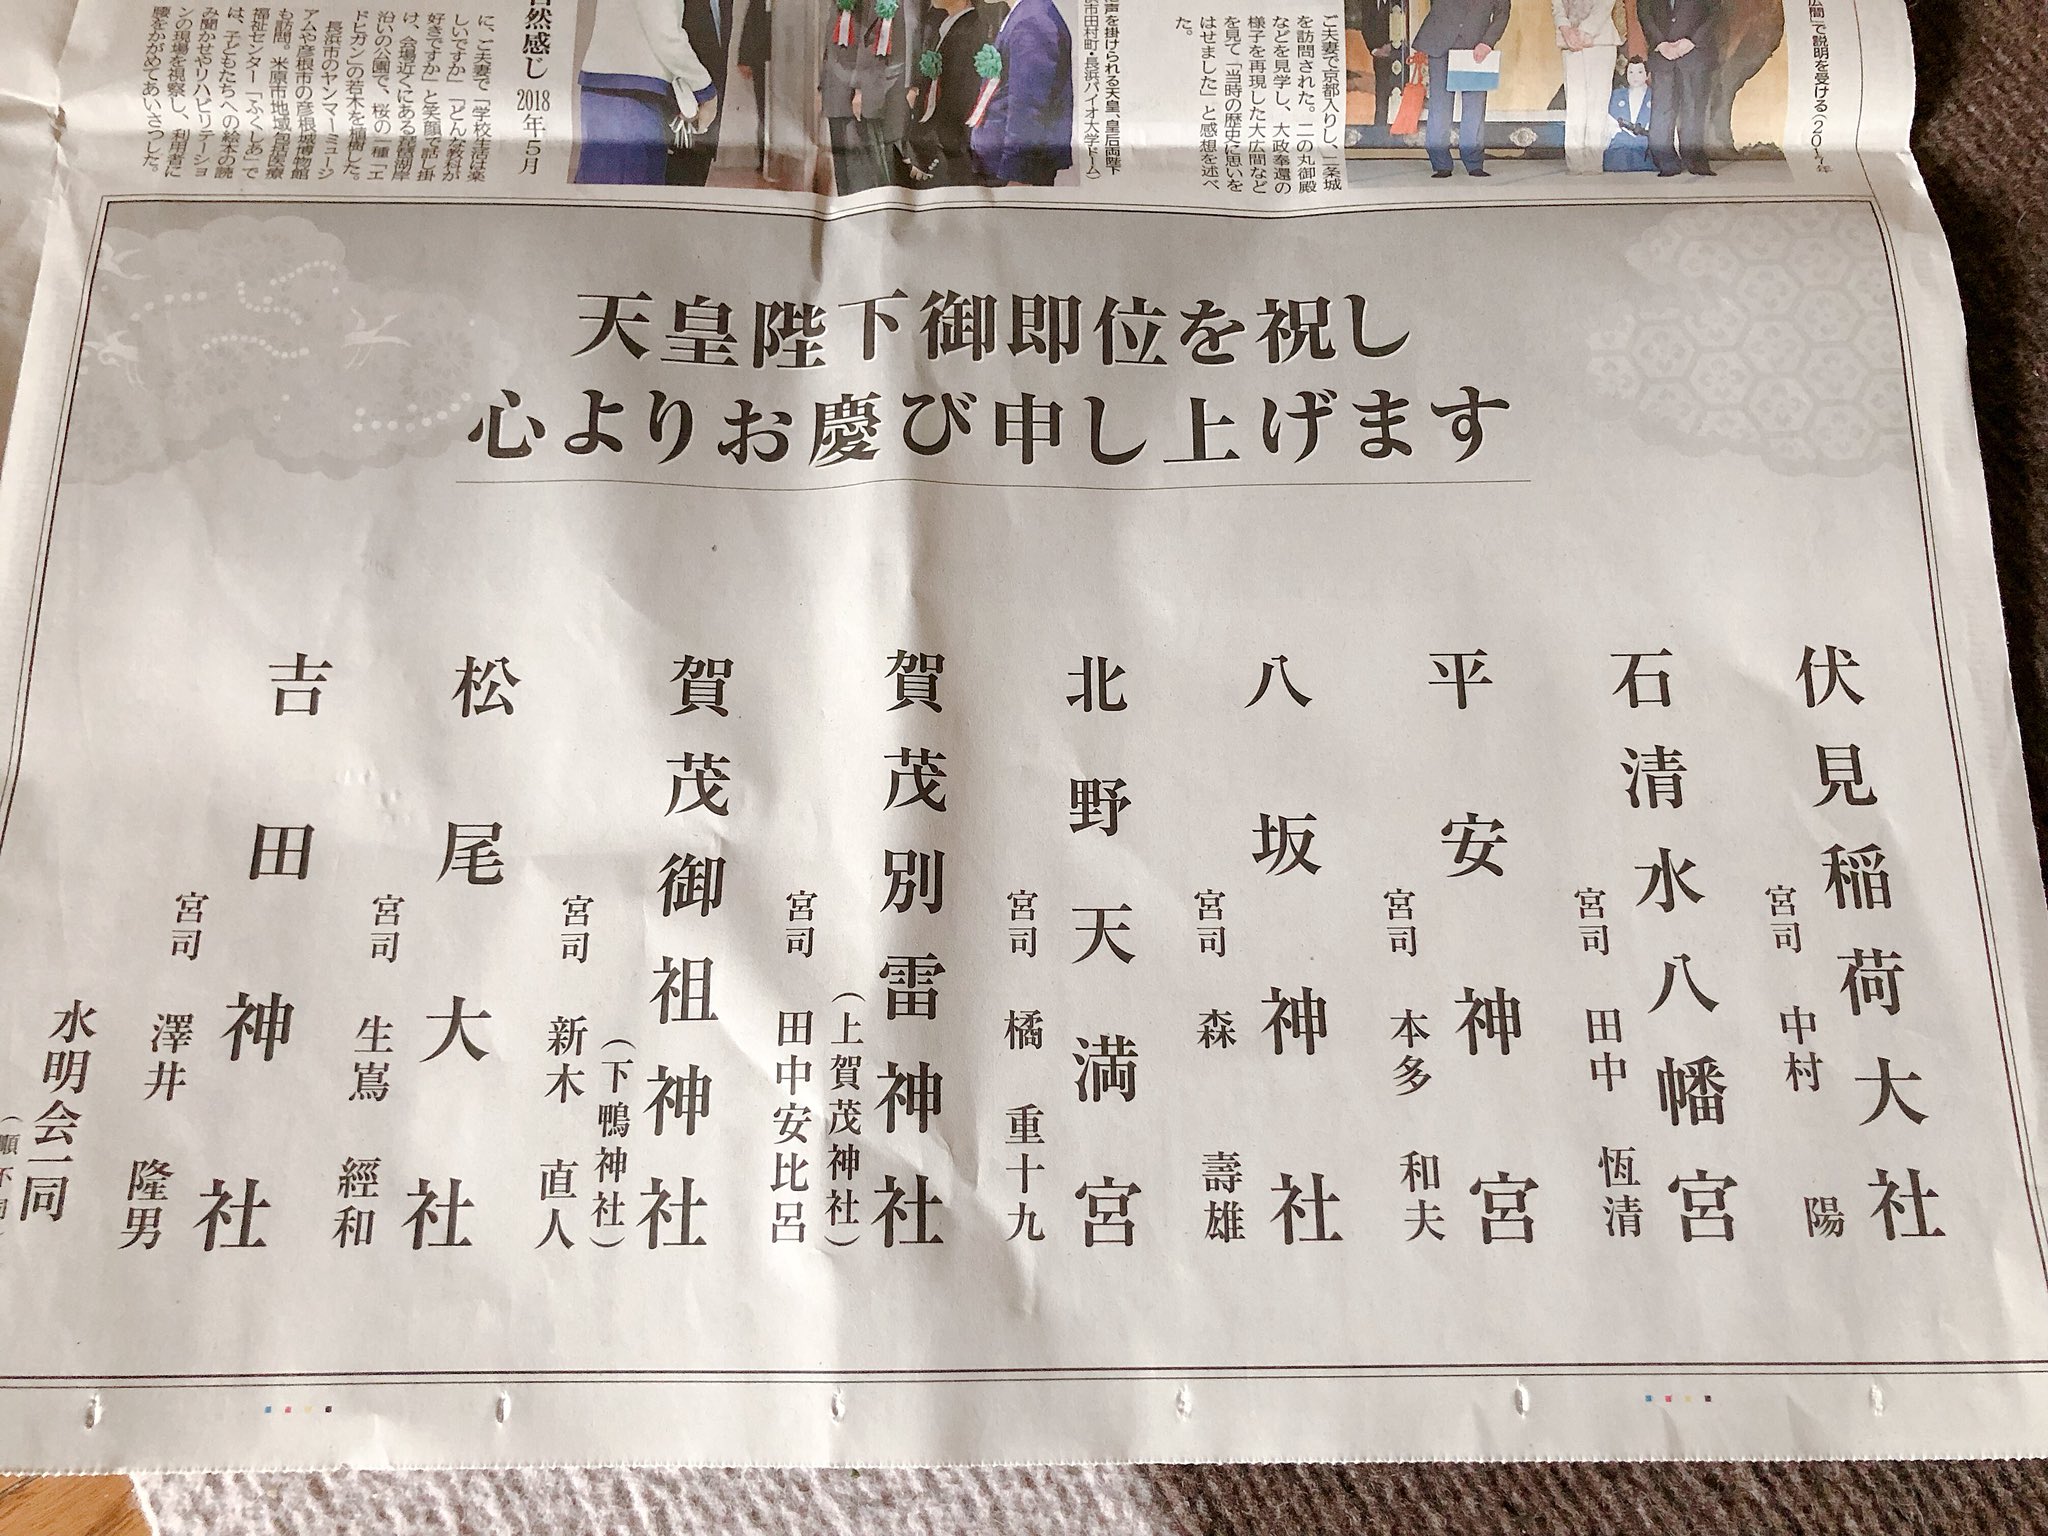 広間」で説明を受ける（2017年
ご夫妻で京都入りし、二条城
を訪問された。二の丸御殿
などを見学し、大政奉還の
様子を再現した大広間など
を見て「当時の歴史に思いを
はせました」と感想を述べ
た。
声を掛けられる天皇、皇后両陛下
浜市田村町・長浜バイオ大学ドーム）
自然感じ 2018年5月
に、ご夫妻で「学校生活は楽
しいですか」「どんな教科が
好きですか」と笑顔で話し掛
け、会場近くにある琵琶湖岸
沿いの公園で、桜の一種「エ
ドヒガン」の若木を植樹した。
長浜市のヤンマーミュージ
アムや彦根市の彦根城博物館
も訪問。米原市地域包括医療
福祉センター「ふくしあ」で
は、子どもたちへの絵本の読
み聞かせやリハビリテーショ
ンの現場を視察し、利用者に
腰をかがめてあいさつした。
天皇陛下御即位を祝し
心よりお慶び申し上げます
伏見稲荷大社
宮司 中村 陽
石清水八幡宮
宮司 田中 恆清
平安神宮
宮司 本多 和夫
八坂神社
宮司 森 壽雄
北野天満宮
宮司 橘 重十九
賀茂別雷神社
（上賀茂神社）
宮司 田中安比呂
賀茂御祖神社
（下鴨神社）
宮司 新木 直人
松尾大社
宮司 生嶌 經和
吉田神社
宮司 澤井 隆男
水明会一同
（順不同）